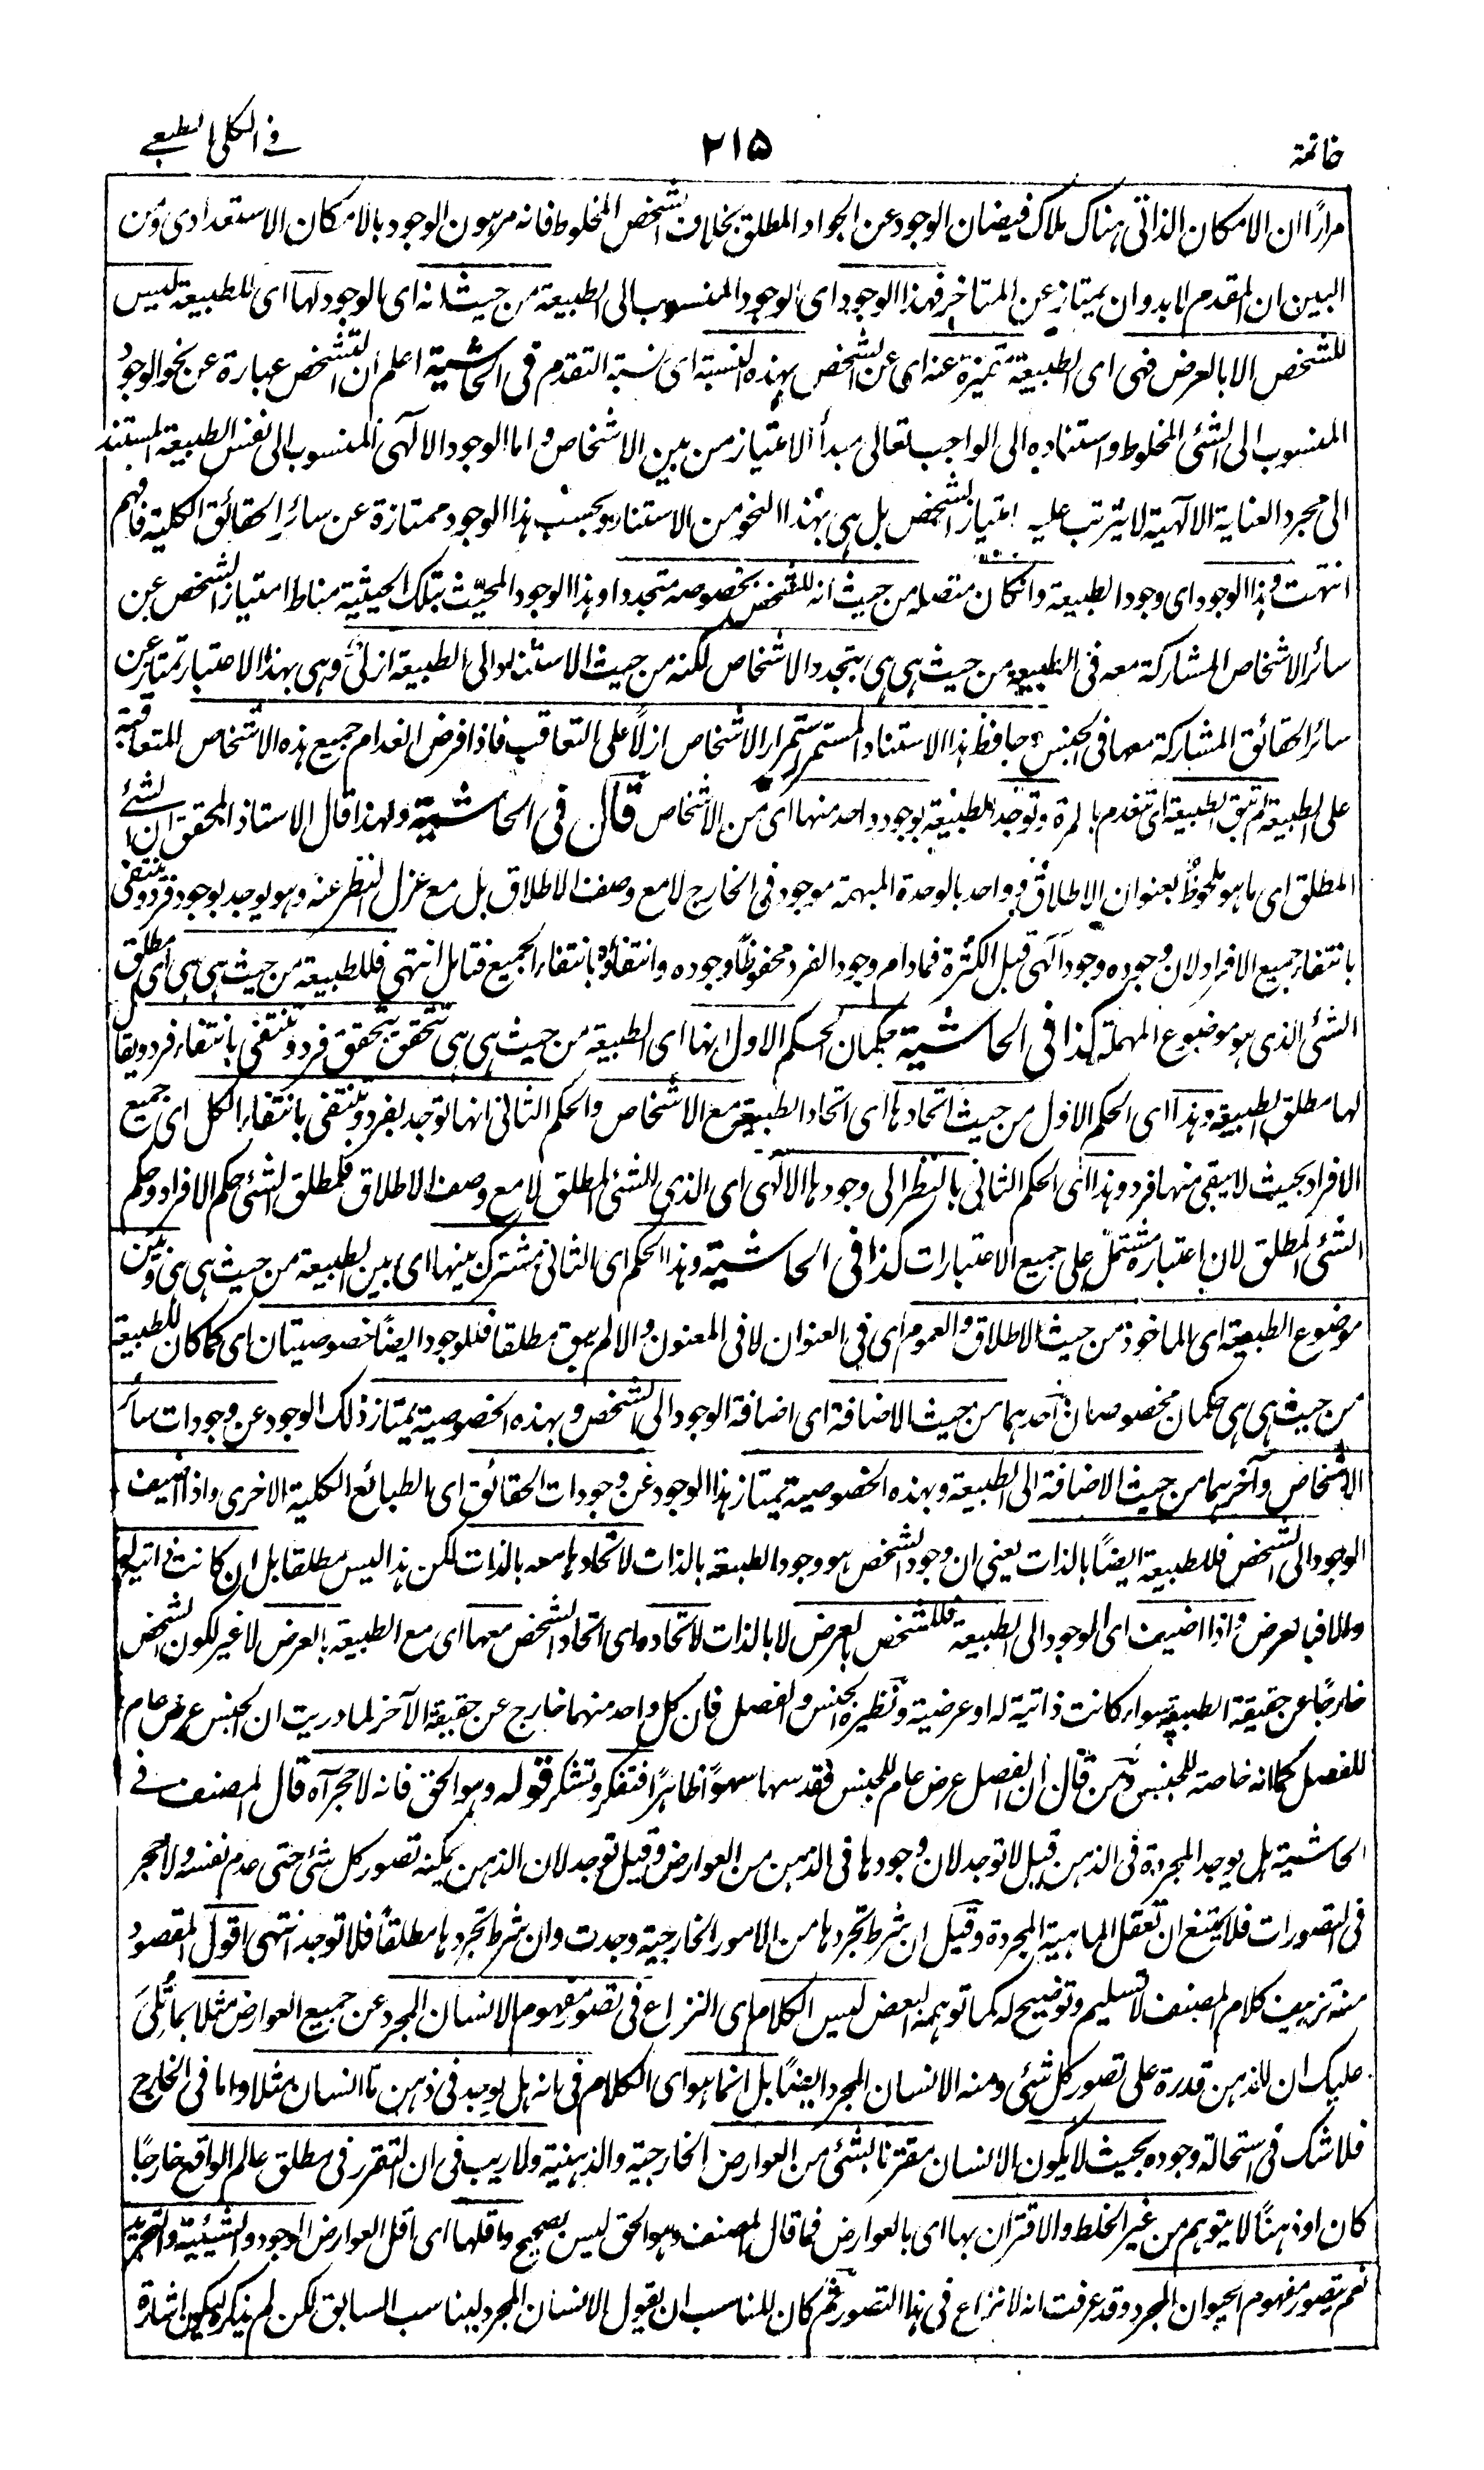 خاتمة
٢١٥
في الكلي الطبعي
مرارًا ان الامكان الذاتي هناك ملاك فيضان الوجود عن الجواد المطلق بخلاف الشخص المخلوط فانه مرهون الوجود بالامكان الاستعدادي ومن
البين ان المقدم لا بد وان يمتاز عن المتاخر فهذا الوجود اى الوجود المنسوب الى الطبيعة من حيث انه اى الوجود لها اى للطبيعة ليس
للشخص الا بالعرض فهى اى الطبيعة متميزة عنه اى عن الشخص بهذه النسبة اى نسبة التقدم في الحاشية اعلم ان التشخص عبارة عن نحو الوجود
المنسوب الى الشئ المخلوط واستناده الى الواجب تعالى مبدأ الامتياز من بين الاشخاص واما الوجود الالهى المنسوب الى نفس الطبيعة المستند
الى مجرد العناية الالهية لا يترتب عليه امتياز الشخص بل هى بهذا النحو من الاستناد وبحسب هذا الوجود ممتازة عن سائر الحقائق الكلية فافهم
انتهت فهذا الوجود اى وجود الطبيعة وانكان من حيث انه للشخص بخصوصه متجددا وهذا الوجود المحيث بتلك الحيثية مناط امتياز الشخص عن
سائر الاشخاص المشاركة معه فى الطبيعة من حيث هى هى بتجدد الاشخاص لكنه من حيث الاستناد الى الطبيعة ازلى وهى بهذا الاعتبار تمتاز عن
سائر الحقائق المشاركة معها فى الجنس وحافظ هذا الاستناد المستمر استمرار الاشخاص ازلاً على التعاقب فاذا فرض انعدام جميع هذه الاشخاص المتعاقبة
على الطبيعة لم تبق الطبيعة اى تنعدم بالمرة وتوجد الطبيعة بوجود واحد منها اى من الاشخاص قال فى الحاشية ولهذا قال الاستاذ المحقق ان الشئ
المطلق اى ما هو ملحوظ بعنوان الاطلاق وواحد بالوحدة المبهمة موجود فى الخارج لا مع وصف الاطلاق بل مع عزل النظر عنه وهو يوجد بوجود فرد وينتفى
بانتفاء جميع الافراد لان وجوده وجود الهى قبل الكثرة فما دام وجود الفرد محفوظاً وجوده وانتفاؤه بانتفاء الجميع فتامل انتهى فللطبيعة من حيث هى هى اى مطلق
الشئ الذى هو موضوع المهملة كذا فى الحاشية حكمان الحكم الاول انها اى الطبيعة من حيث هى هى تتحقق بتحقق فرد وتنتفى بانتفاء فرد ويقال
لها مطلق الطبيعة وهذا اى الحكم الاول من حيث اتحادها اى اتحاد الطبيعة مع الاشخاص والحكم الثانى انها توجد بفرد وتنتفى بانتفاء الكل اى جميع
الافراد بحيث لا يبقى منها فرد وهذا اى الحكم الثانى بالنظر الى وجودها الالهى اى الذى للشئ المطلق لا مع وصف الاطلاق فلمطلق الشئ حكم الافراد وحكم
الشئ المطلق لان اعتباره مشتمل على جميع الاعتبارات كذا فى الحاشية وهذا الحكم اى الثانى مشترك بينها اى بين الطبيعة من حيث هى هى وبين
موضوع الطبيعة اى الماخوذ من حيث الاطلاق والعموم اى فى العنوان لا فى المعنون والا لم يبق مطلقا فللوجود ايضاً خصوصيتان اى كما كان للطبيعة
من حيث هى هى حكمان مخصوصان احدهما من حيث الاضافة اى اضافة الوجود الى الشخص وبهذه الخصوصية يمتاز ذلك الوجود عن وجودات سائر
الاشخاص وآخرهما من حيث الاضافة الى الطبيعة وبهذه الخصوصية يمتاز هذا الوجود عن وجودات الحقائق اى الطبائع الكلية الاخرى واذا اضيف
الوجود الى الشخص فللطبيعة ايضاً بالذات يعنى ان وجود الشخص هو وجود الطبيعة بالذات لاتحادها معه بالذات لكن هذا ليس مطلقا بل ان كانت ذاتية له
والا فبالعرض واذا اضيف اى الوجود الى الطبيعة فللشخص بالعرض لا بالذات لاتحاده اى اتحاد الشخص معها اى مع الطبيعة بالعرض لا غير لكون الشخص
خارجًا عن حقيقة الطبيعة سواء كانت ذاتية له او عرضية ونظيره الجنس والفصل فان كل واحد منهما خارج عن حقيقة الآخر لما دريت ان الجنس عرض عام
للفصل كما انه خاصة للجنس ومن قال ان الفصل عرض عام للجنس فقد سها سهوًا ظاهرًا فتفكر وتشكر قوله وهو الحق فانه لا حجر آه قال المصنف فى
الحاشية هل يوجد المجردة فى الذهن قيل لا توجد لان وجودها فى الذهن من العوارض وقيل توجد لان الذهن يمكنه تصور كل شئ حتى عدم نفسه ولا حجر
فى التصورات فلا يمتنع ان تعقل الماهية المجردة وقيل ان شرط تجردها من الامور الخارجية وجدت وان شرط تجردها مطلقاً فلا توجد انتهى اقول المقصود
منه تزييف كلام المصنف لا تسليم وتوضيح له كما توهمه البعض ليس الكلام اى النزاع فى تصور مفهوم الانسان المجرد عن جميع العوارض مثلا بما تُلى
عليك ان للذهن قدرة على تصور كل شئ ومنه الانسان المجرد ايضاً بل انما هو اى الكلام فى بانه هل يوجد فى ذهن ما انسان مثلا واما فى الخارج
فلا شك فى استحالة وجوده بحيث لا يكون الانسان مقترنا بشئ من العوارض الخارجية والذهنية ولا ريب فى ان التقرر فى مطلق عالم الواقع خارجًا
كان او ذهنًا لا يتوهم من غير الخلط والاقتران بها اى بالعوارض فما قال المصنف وهو الحق ليس بصحيح واقلها اى اقل العوارض الوجود والشيئية والتميز
نعم يتصور مفهوم الحيوان المجرد وقد عرفت انه لا نزاع فى هذا التصور ثم كان المناسب ان يقول الانسان المجرد ليناسب السابق لكن لم يذكره ليكون اشارة